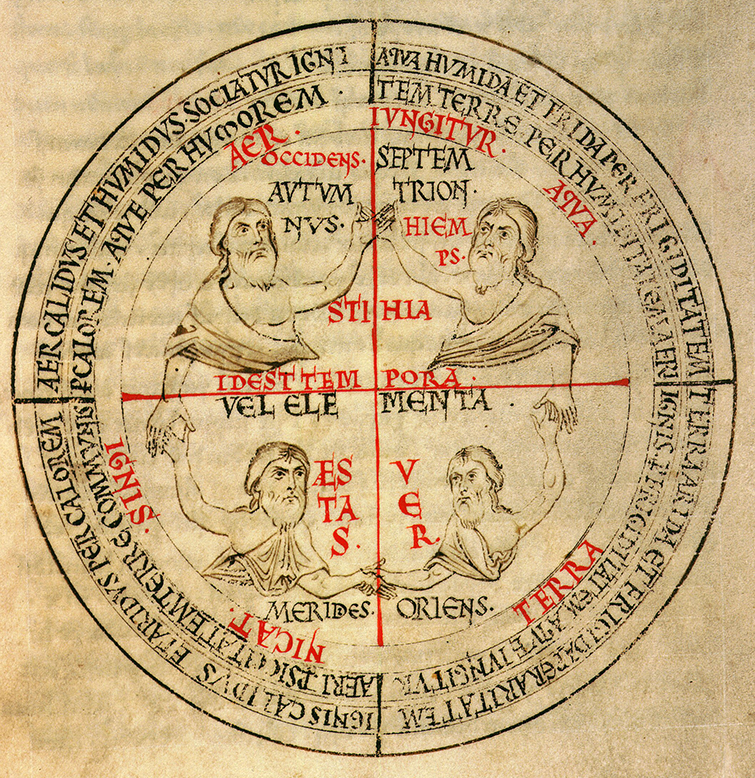 AER CALIDUS ET HUMIDUS SOCIATUR IGNI
P CALOREM. AQUE PER HUMOREM.
AQUA HUMIDA ET FRIGIDA PER FRIGIDITATEM
TEM TERRE. PER HUMIDITATEM AERI
IUNGITUR.
TERRA ARIDA ET FRIGIDA P ARIDITATEM
IGNIS. PER FRIGIDITATEM AQUE IUNGITUR
IGNIS CALIDUS ET ARIDUS PER CALOREM
AERI. P SICCITATEM TERRE COMMUNIS
AER.
AQUA.
TERRA
IGNIS
NICAT.
OCCIDENS.
AUTUM
NUS.
SEPTEM
TRION.
HIEM
PS.
STI HIA
IDEST TEM PORA.
VEL ELE MENTA.
ÆS
TA
S.
V
E
R.
MERIDES. ORIENS.